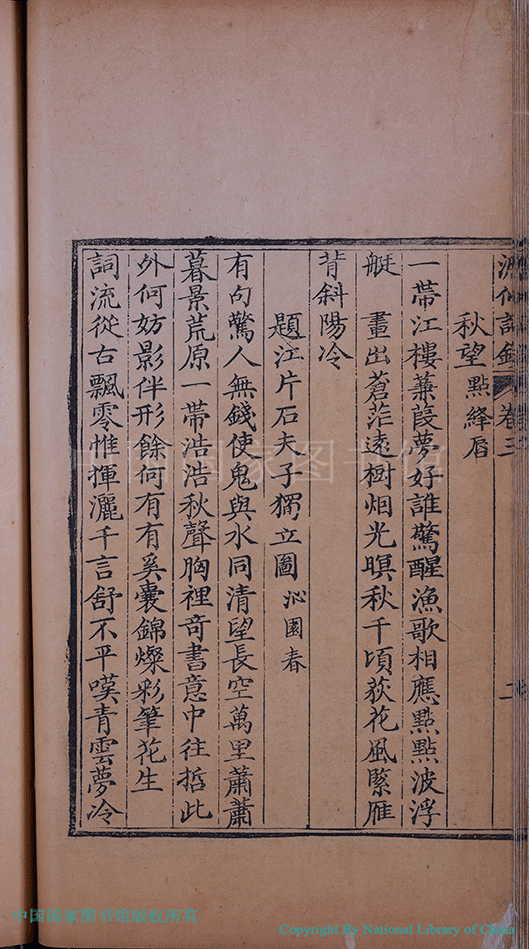 卷三
二
秋望 點絳唇
一帶江樓蒹葭夢好誰驚醒漁歌相應點點波浮
艇 畫出蒼茫遠樹烟光暝秋千頃荻花風緊雁
背斜陽冷
題江片石夫子獨立圖 沁園春
有句驚人無錢使鬼與水同清望長空萬里蕭蕭
暮景荒原一帶浩浩秋聲胸裡奇書意中往哲此
外何妨影伴形餘何有有奚囊錦燦彩筆花生
詞流從古飄零惟揮灑千言舒不平嘆青雲夢冷
中国国家图书馆
中国国家图书馆版权所有
Copyright By National Library of China